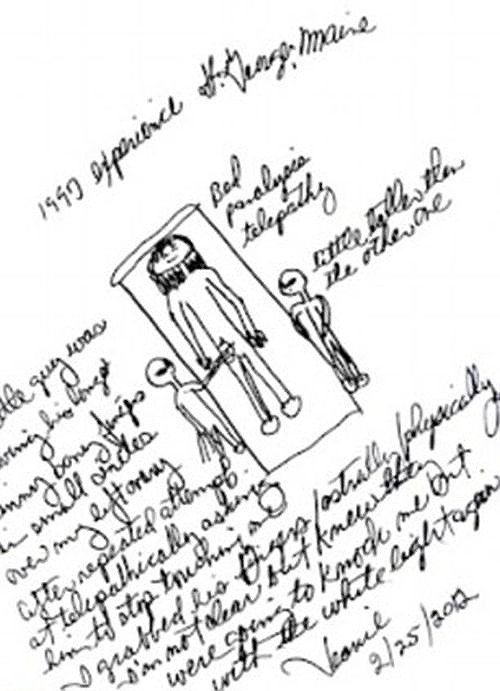 1997 experience St. George, Maine
Bed
paralysis
telepathy
little taller than
the other one
little guy was
moving his long
skinny bony fingers
in small circles
over my left ovary
after repeated attempts
at telepathically asking
him to stop touching me
I grabbed his fingers/astrally/physically
I'm not clear but I knew they
were going to knock me out
with the white light again
2/25/2012